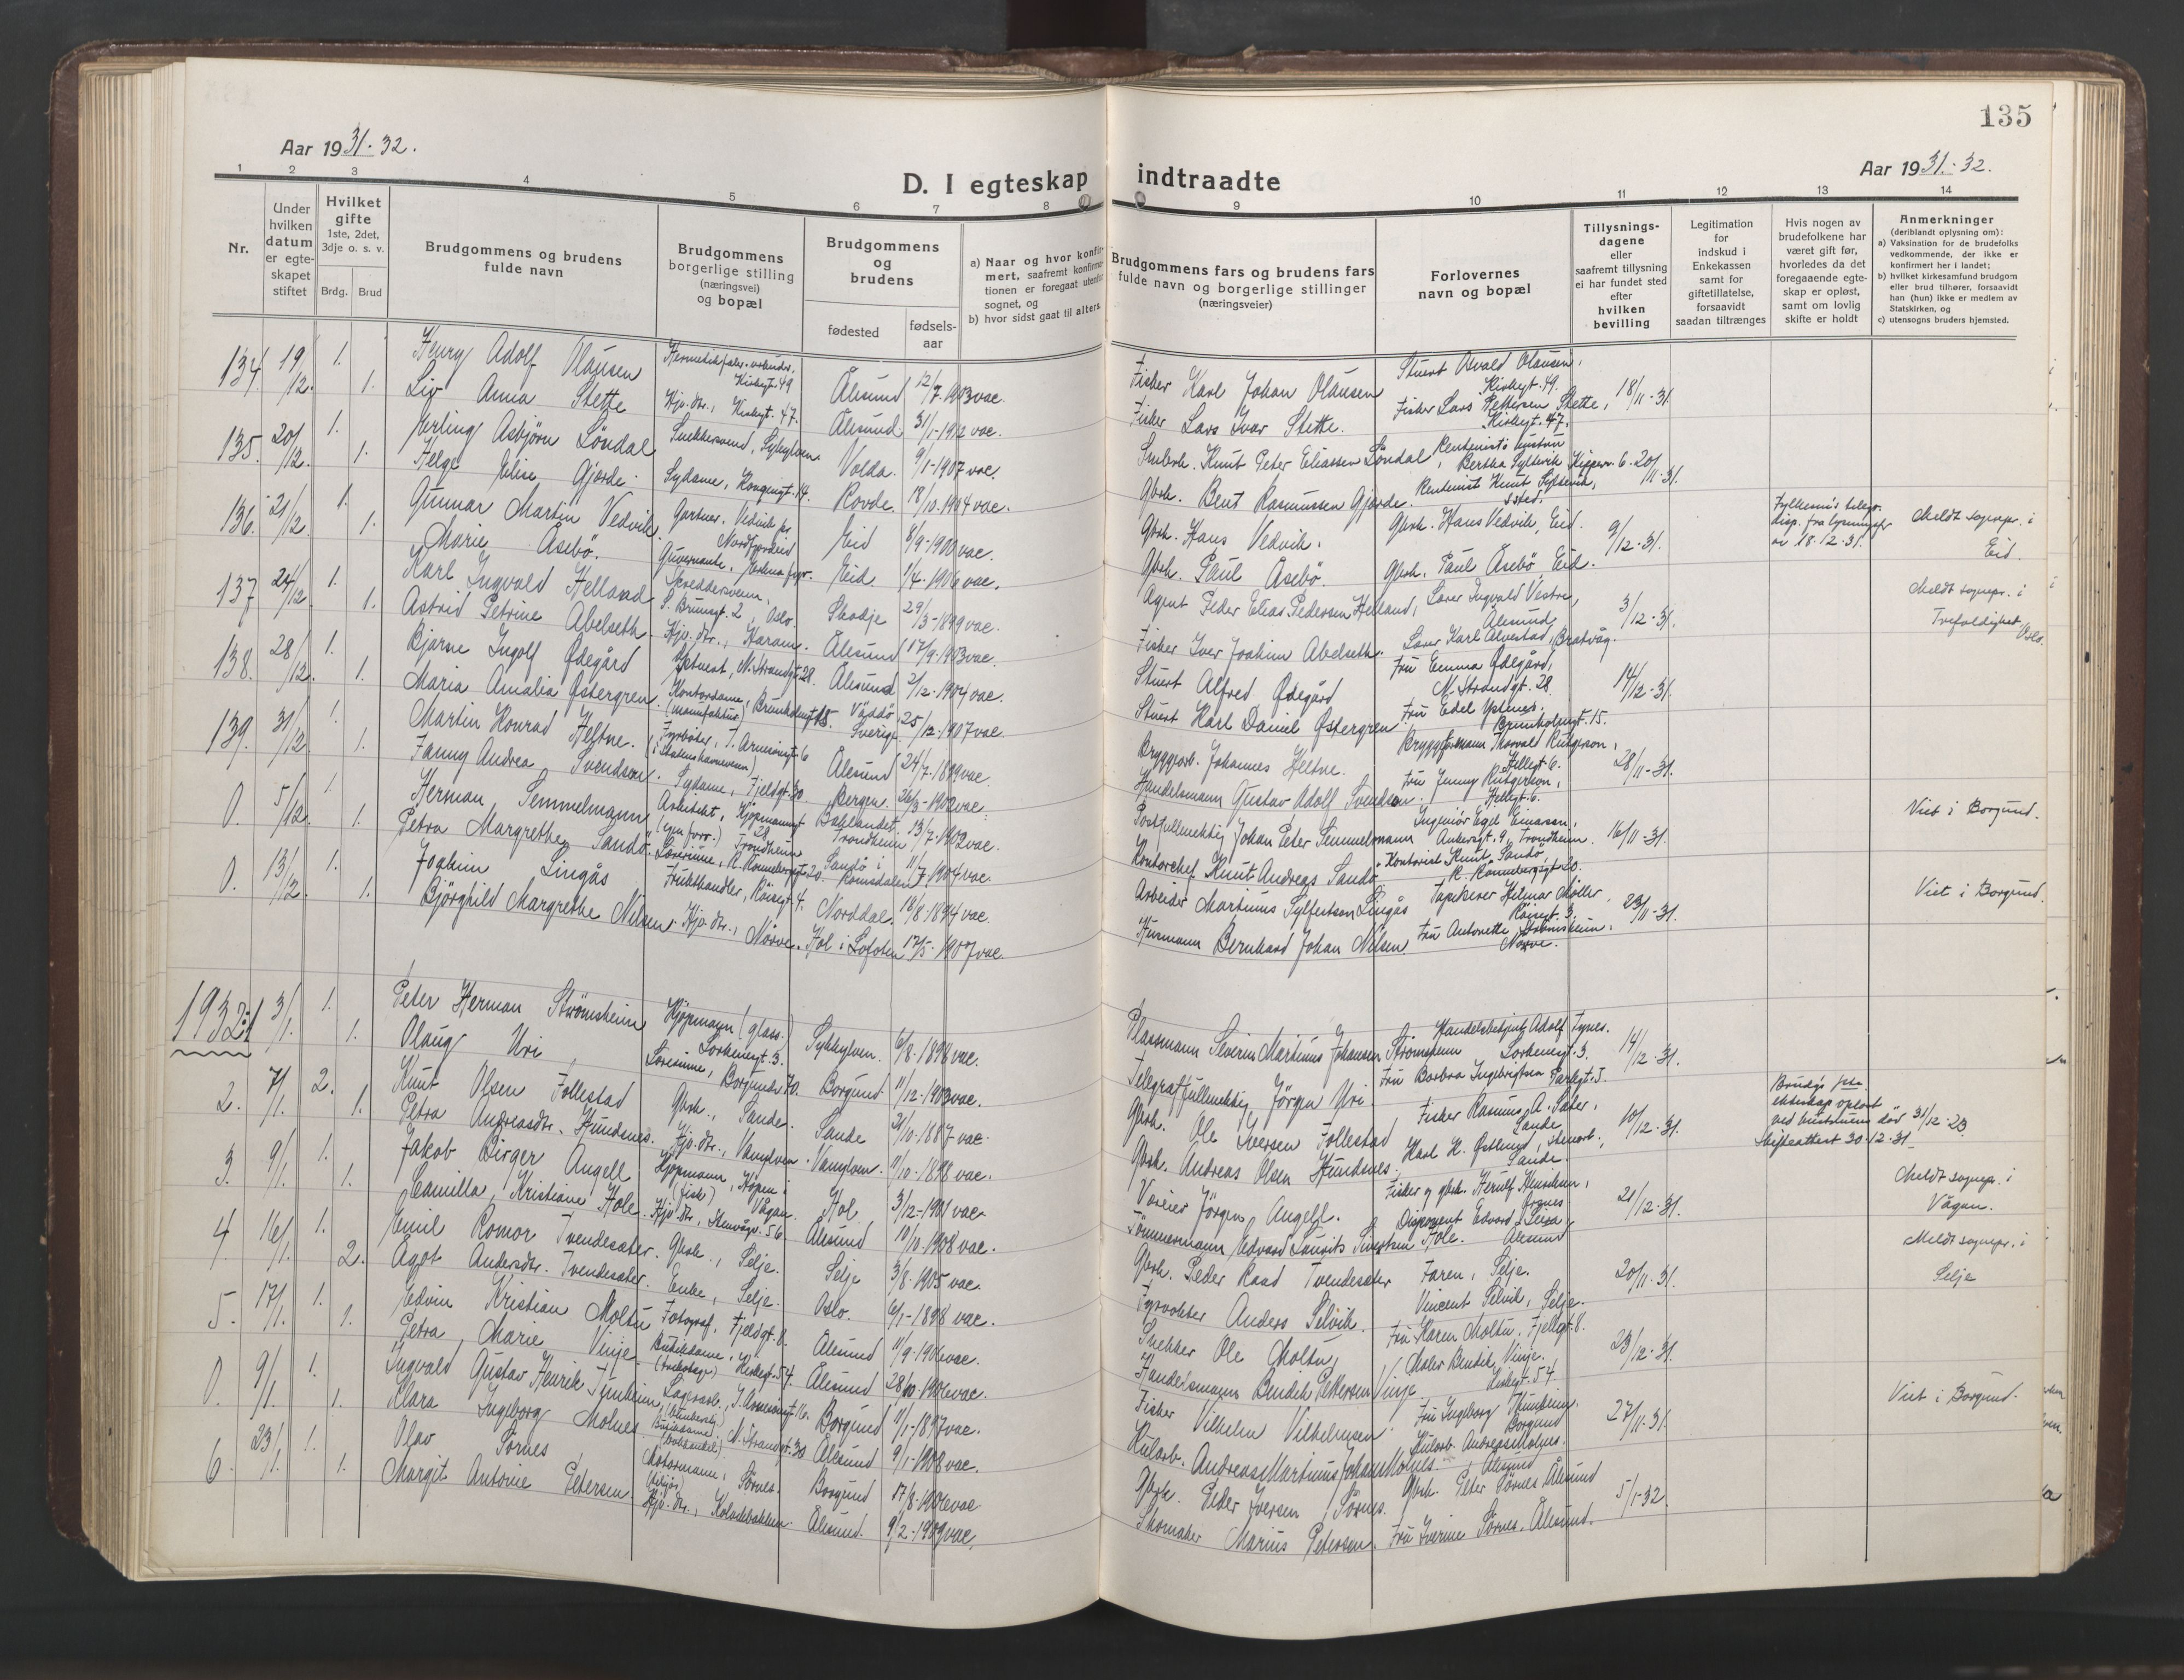 135
Aar 1931-32.
Aar 1931-32.
D. I egteskap indtraadte
1 2 3 4 5 6 7 8 9 10 11 12 13 14
Nr.
Under hvilken datum er egteskapet stiftet
Hvilket gifte
1ste, 2det, 3dje o. s. v.
Brdg. Brud
Brudgommens og brudens fulde navn
Brudgommens borgerlige stilling (næringsvei) og bopæl
Brudgommens og brudens
fødested
fødselsaar
a) Naar og hvor konfirmert, saafremt konfirmationen er foregaat utenfor sognet, og
b) hvor sidst gaat til alters
Brudgommens fars og brudens fars fulde navn og borgerlige stillinger
(næringsveier)
Forlovernes navn og bopæl
Tillysningsdagene eller saafremt tillysning ei har fundet sted efter hvilken bevilling
Legitimation for indskud i Enkekassen samt for giftetillatelse, forsaavidt saadan tiltrænges
Hvis nogen av brudefolkene har været gift før, hvorledes da det foregaaende egteskap er opløst, samt om lovlig skifte er holdt
Anmerkninger
(deriblandt oplysning om):
a) Vaksination for de brudefolks vedkommende, der ikke er konfirmert her i landet;
b) hvilket kirkesamfund brudgom eller brud tilhører, forsaavidt han (hun) ikke er medlem av Statskirken, og
c) utensogns bruders hjemsted.
134. 19/12. 1. Henry Adolf Olausen Kirkegt. 49 Ålesund 12/7-1903 vac. Fisker Karl Johan Olausen Stuert Osvald Olausen, Kirkegt. 49. 18/11-31.
1. Liv Anna Stette Hjv. dtr., Kirkegt. 47. Ålesund 31/1-1912 vac. Fisker Lars Ivar Stette. Fisker Lars Pettersen Stette, Kirkegt. 47.
135. 20/12. 1. Erling Asbjörn Löndal Snekkersvend, Sykylven. Volda. 9/1-1907 vac. Smbrk. Knut Peter Eliassen Löndal Rentenists hustru Bertha Syltevik Kipperv. 6. 20/11-31.
1. Helge Elise Gjerde. Sydame, Kongensgt. 14. Rovde. 18/10.1904 vac. Gbrk. Bent Rasmussen Gjærde. Rentenist Knut Syltevik, ssted.
136. 21/12. 1. Gunnar Martin Vedvik. Gartner. Vedvik pr. Nordfjordeid Eid 8/9-1900 vac. Gbrk. Hans Vedvik. Gbrk. Hans Vedvik, Eid. 9/12-31. Meldt sognepr. i Eid.
1. Marie Åsebö. Guvernante, Eid. 1/4-1906 vac. Gbrk. Paul Åsebö. Gbrk. Paul Åsebö Eid.
137 24/12. 1. Karl Ingvald Helland Skreddersvenn, S. Brunsgt. 2, Oslo. Skodje 29/3-1899 vac. Agent Peder Elias Pedersen Helland, Lærer Ingvald Vestre, Ålesund 3/12-31. Meldt sognepr. i Trefoldighet, Oslo.
1. Astrid Petrine Abelseth. Hjv. dtr., Haram. Ålesund 17/9-1903 vac. Fisker Iver Joakim Abelseth. Lærer Karl Alvestad, Brattvåg.
138. 28/12. 1. Bjarne Ingolf Ødegård N. Strandgt. 28. Ålesund 2/12-1904 vac. Stuert Alfred Ødegård Fru Emma Ødegård, N. Strandgt. 28. 14/12-31.
1. Maria Amalia Østergren Kontordame, (manufaktur) Brunholmgt 15. Väddö, Sverige 25/12-1907 vac. Stuert Karl Daniel Østergren Fru Edel Ystenes. Brunholmgt. 15.
139. 31/12. 1. Martin Konrad Heltne. Fyrböter, J. Arnesensgt 6 Ålesund 24/7-1899 vac. Bryggearb. Johannes Heltne. Bryggeformann Thorvald Rutgerson, Fjellegt. 6. 28/11-31.
1. Fanny Andrea Svendsen. Sydame, Fjeldgt. 30. Bergen. 26/3-1902 vac. Handelsmann Gustav Adolf Svendsen. Fru Jenny Rutgerson,
0. 5/12. 1. Herman Semmelmann Arkitekt, Kjöpmannsgt 28 (egen forr.) Trondheim Baklandet Trondheim 13/7-1902 vac. Postfullmektig Johan Peter Semmelmann Ingeniör Egil Einarsen, Ankersgt. 9, Trondheim. 16/11-31. Viet i Borgund.
1. Petra Margrethe Sandö. Lærerinne, R. Rönnebergsgt 20. Sandö i Romsdalen 11/7-1904 vac. Kontorchef Knut Andreas Sandö Kontorist Knut Sandö, R. Rönnebergsgt 20.
0. 13/12. 1. Joakim Lingås Frukthandler, Röisegt. 4. Norddal. 18/8-1894 vac. Arbeider Martinus Sylfestson Lingås Tapetserer Hilmar Möller, Röisegt. 3. 23/11-31. Viet i Borgund.
1. Björghild Margrethe Nilsen Hjv. dtr., Nörve. Hol i Lofoten 17/5-1907 vac. Hermann Bernhard Johan Nilsen Fru Antonette Strömsheim, Nörve.
1932:
1 3/1. 1. Peter Herman Strömsheim Kjöpmann (glass.) Lorkenesgt. 3. Sykkylven. 6/8-1898 vac. Plassmann Severin Martinus Johansen Strömsheim Handelsbetjent Adolf Fynes. Lorkenesgt. 3. 14/12-31.
1. Olaug Uri, Lærerinne, Borgundv. 70. Borgund 11/12-1903 vac. Telegraffullmektig Jörgen Uri Fru Barbra Ingebrigtsen Parkgt. 5.
2. 7/1. 2. Knut Olsen Follestad Gbrk., Sande. Sande 21/10-1887 vac. Gbrk. Ole Iversen Follestad Fisker Rasmus A. Sæter, Sande 10/12-31. Brudg's første ekteskap oplöst ved hustruens död 31/12-23. Skifteattest 30-12-31.
1. Petra Andreasdtr. Hundsnes. Hjv. dtr., Vanylven. Vanylven. 11/10-1898 vac. Gbrk. Andreas Olsen Hundsnes. Karl H. Östlund, stenarb., Sande.
3. 9/1. 1. Jakob Birger Angell Kjöpmann, (fisk) Vågan. Hol 3/12-1901 vac. Jörgen Angell. Fisker og gbrk. 21/12-31. Meldt sognepr. i Vågan.
1. Camilla Kristiane Hole. Hjv. dtr., 56 Ålesund 10/10-1908 vac. Tömmermann Edvard Laurits Sivertsen Hole. Disponent Edvard Ålesund
4. 16/1. 1. Emil Romor Tvendesæter. Gbrk., Selje. Selje 3/8-1905 vac. Gbrk. Peder Raad Tvendesæter Faren, Selje. 20/11-31. Meldt sognepr. i Selje
2. Ågot Andersdtr. Tvendesæter. Enke, Selje. Oslo. 6/1-1898 vac. Fyrvokter Anders Selvik. Vincent Selvik, Selje.
5. 17/1. 1. Edvin Kristian Moltu Fotograf, Fjeldgt. 8. Ålesund 11/9-1906 vac. Snekker Ole Moltu, Fru Karen Moltu, Fjellgt. 8. 23/12-31.
1. Petra Marie Vinje. Butikkdame, Kirkegt. 54. Ålesund 28/10-1906 vac. Handelsmann Bendik Pettersen Vinje Maler Bendik Vinje. Kirkegt. 54.
0. 9/1. 1. Ingvald Gustav Henrik Lagerarb., J. Arnesensgt. 16. Borgund 11/1-1897 vac. Fisker Vilhelm Vilhelmsen. Fru Ingeborg Borgund 27/11-31. Viet i Borgund.
1. Klara Ingeborg Molnes Butikdame, N. Strandgt. 30 Ålesund 9/1-1908 vac. Kularb. Andreas Martinus Johan Molnes. Kularb. Andreas Molnes. Ålesund
6. 23/1. 1. Olav Sörnes Motormann, Sörnes. Borgund 17/8-1906 vac Gbrk. Peder Iversen Sörnes. Gbrk. Peter Sörnes, Ålesund 5/1-32.
1. Margit Antonie Petersen. Hjv. dtr., Ålesund. 9/2-1909 vac. Skomaker Marius Petersen. Fru Iverine Sörnes, Ålesund.